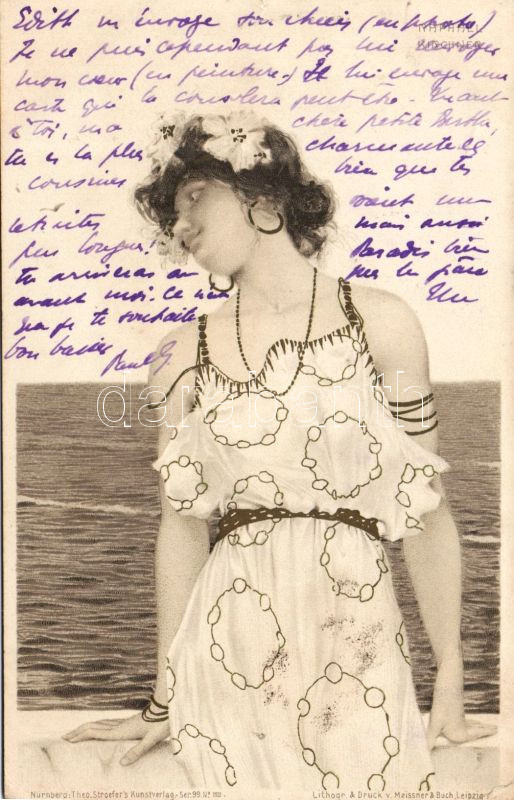 Edith m'envoye son chéri (en photo)
RAPHAEL
KIRCHNER
Je ne puis cependant pas lui envoyer
mon cœur (en peinture) Je lui envoye une
carte qui la consolera peut être. Quant
à toi, ma chère petite Berthe,
tu es la plus charmante de
cousines bien que tes
soient un
mais aussi
peu longues! Paradis bien
tu arriveras au par la
avant moi. Ce Un
que je te souhaite
bon baiser
darabanth
Nürnberg: Theo. Stroefer's Kunstverlag. Ser. 99. No
Lithogr. & Druck v. Meissner & Buch, Leipzig.